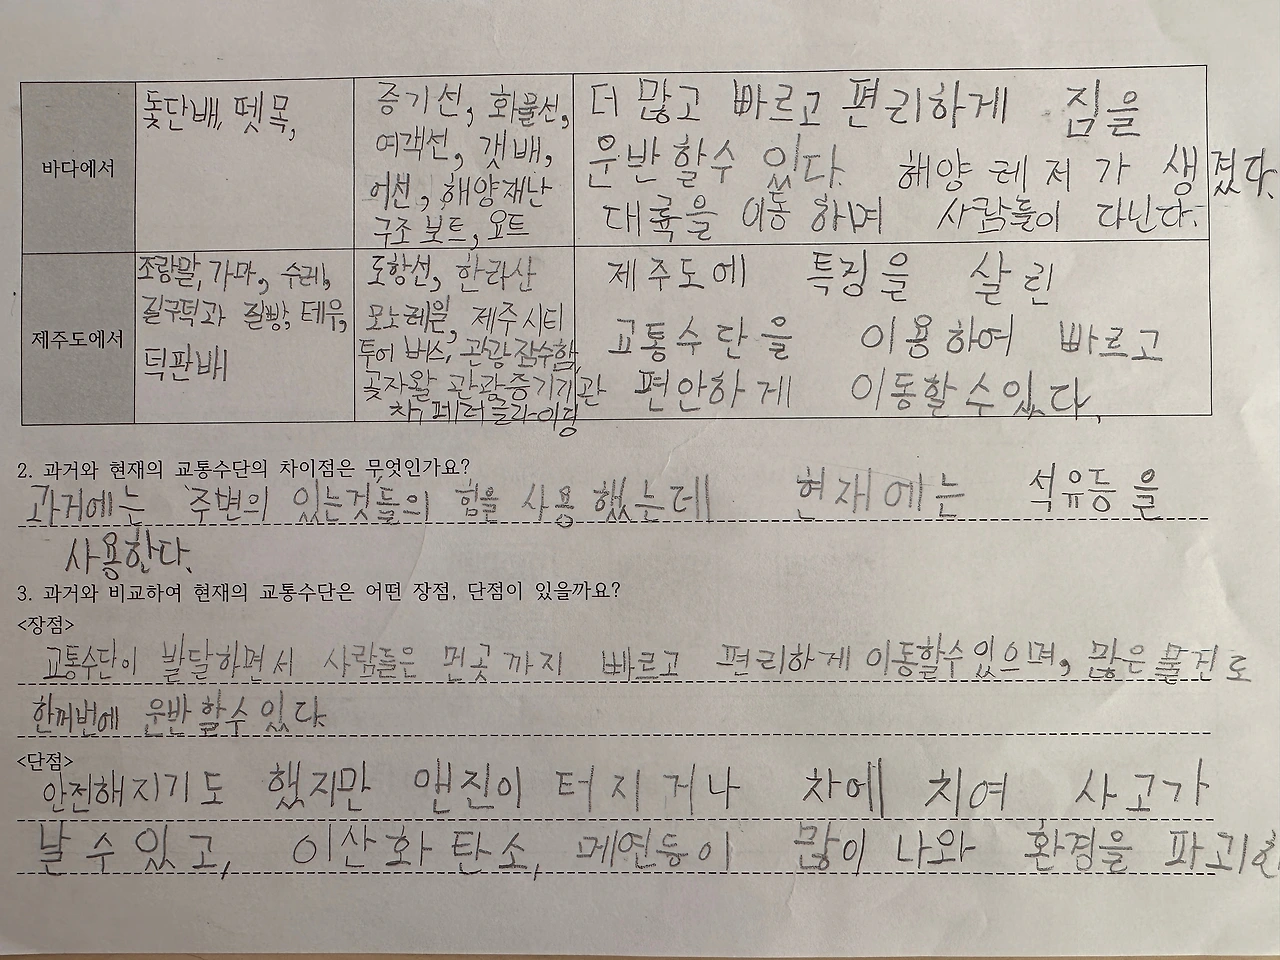 바다에서
돛단배, 뗏목,
증기선, 화물선,
여객선, 갯배,
어선, 해양재난
구조 보트, 요트
더 많고 빠르고 편리하게 짐을
운반 할수 있다. 해양 레저가 생겼다.
대륙을 이동 하며 사람들이 다닌다.
제주도에서
조랑말, 가마, 수레,
질구덕과 질빵, 테우,
덕판배
도항선, 한라산
모노레일, 제주 시티
투어 버스, 관광 잠수함,
곶자왈 관광증기기관
차, 페러글라이딩
제주도에 특징을 살린
교통수단을 이용하여 빠르고
편안하게 이동할수있다.
2. 과거와 현재의 교통수단의 차이점은 무엇인가요?
과거에는 주변의 있는것들의 힘을 사용 했는데 현재에는 석유등을
사용한다.
3. 과거와 비교하여 현재의 교통수단은 어떤 장점, 단점이 있을까요?
<장점>
교통수단이 발달하면서 사람들은 먼곳 까지 빠르고 편리하게 이동할수 있으며, 많은
한꺼번에 운반 할수 있다.
<단점>
안전해지기도 했지만 앤진이 터지거나 차에 치여 사고가
날 수 있고, 이산화탄소, 메연등이 많이 나와 환경을